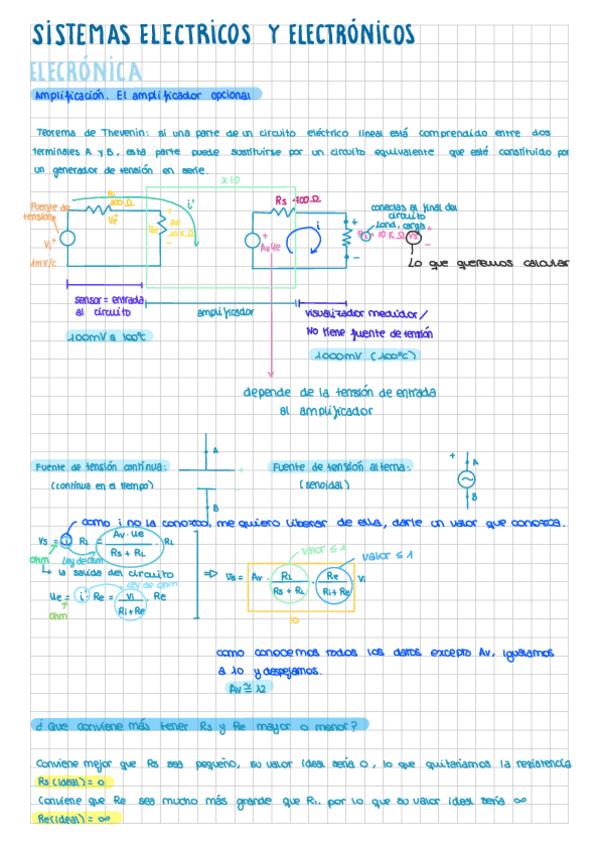 SISTEMAS ELECTRICOS Y ELECTRÓNICOS
ELECRÓNICA
Amplificación. El amplificador opcional
Teorema de Thevenin: si una parte de un circuito eléctrico lineal está comprendido entre dos
terminales A y B, esta parte puede sustituirse por un circuito equivalente que esté constituido por
un generador de tensión en serie.
x10
Fuente de
tensión
Vi
1mV/c
i'
Rs 100Ω
Av·Ue
i
conectas al final del
circuito
Lo que queremos calcular
sensor = entrada
al circuito
amplificador
visualizador medidor /
No tiene fuente de tensión
100mV a 100°C
1000mV (100°C)
depende de la tensión de entrada
al amplificador
Fuente de tensión contínua:
(contínua en el tiempo)
A
B
Fuente de tensión alterna:
(senoidal)
+
A
B
como i no la conozco, me quiero liberar de ella, darle un valor que conozca.
Vs = i RL = Av·Ue / Rs + RL · RL
ohm
Ley de ohm
↳ la salida del circuito
Ley de ohm
Ue = i' · Re = Vi / Ri+Re · Re
ohm
valor ≤ 1
valor ≤ 1
⇒ Vs = Av · RL / Rs + RL · Re / Ri+Re · Vi
10
como conocemos todos los datos excepto Av, igualamos
a 10 y despejamos.
Av ≅ 12
¿Que conviene más tener Rs y Re mayor o menor?
Conviene mejor que Rs sea pequeño, su valor ideal sería 0, lo que quitaríamos la resistencia
Rs (ideal) = 0
Conviene que Re sea mucho más grande que Ri, por lo que su valor ideal sería ∞
Re (ideal) = ∞